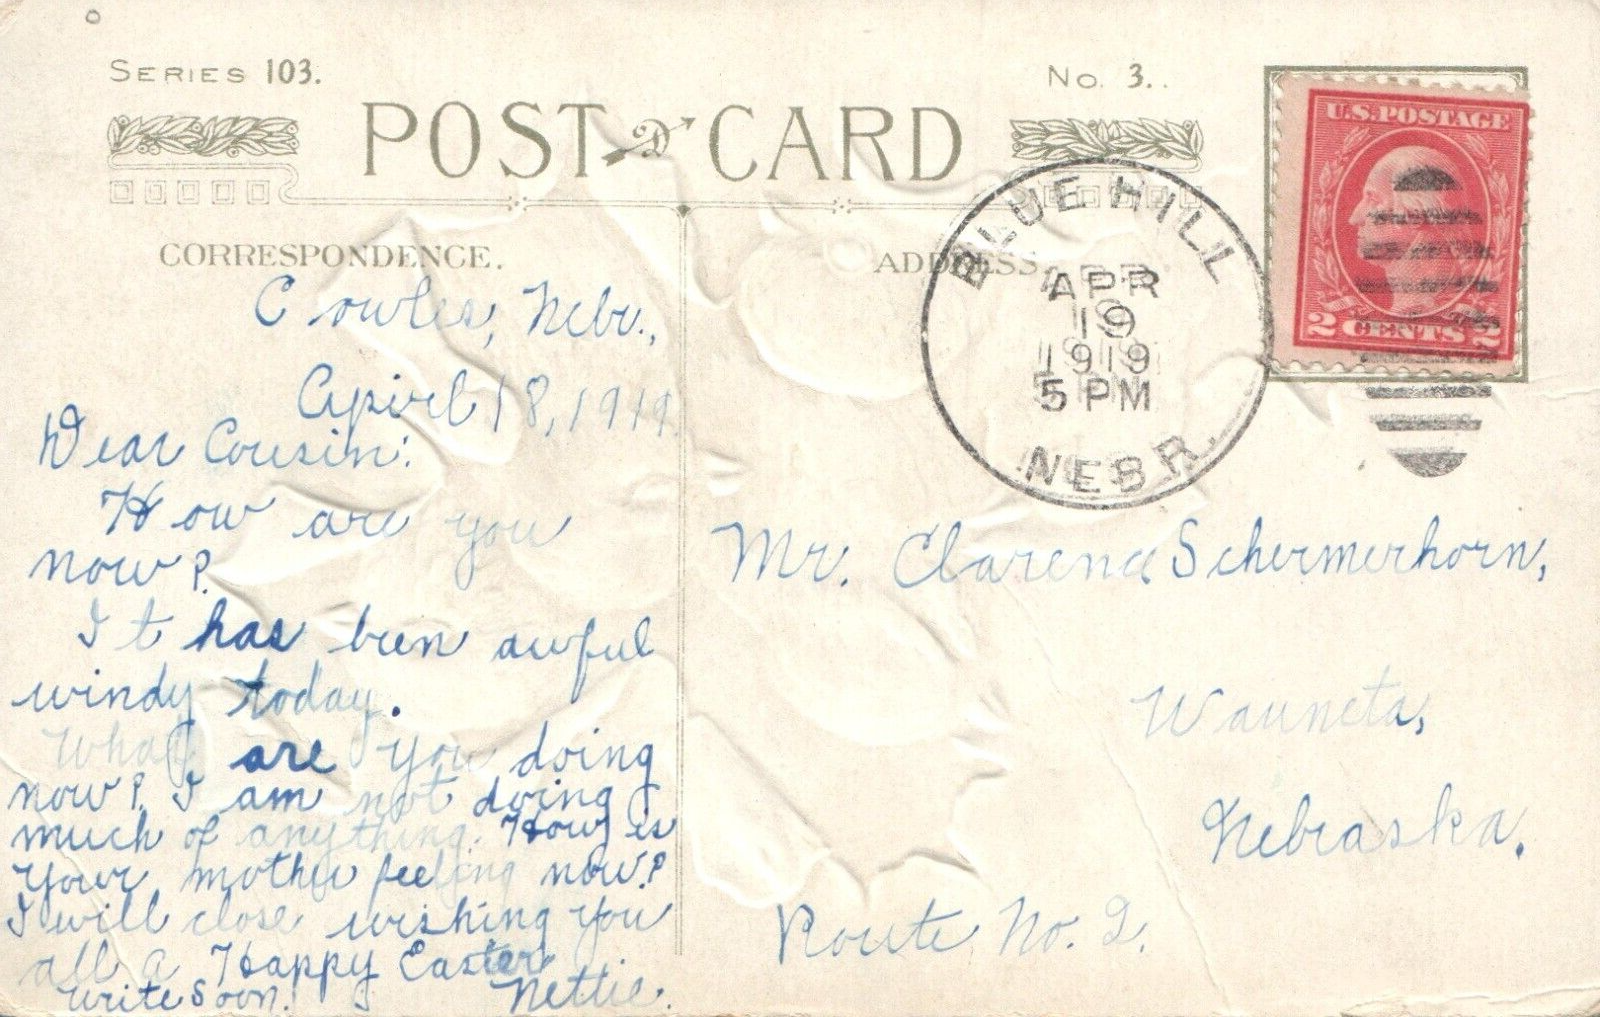 SERIES 103.
No. 3..
POST CARD
U.S. POSTAGE
2 CENTS 2
BLUE HILL
APR
19
1919
5 PM
NEBR.
CORRESPONDENCE.
ADDRESS
Cowles, Nebr.,
April 18, 1919.
Dear Cousin:
How are you
now?
It has been awful
windy today.
What are you doing
now? I am not doing
much of anything. How is
your mother feeling now?
I will close wishing you
all a Happy Easter
Write Soon. Nettie.
Mr. Clarence Schermerhorn,
Wauneta,
Nebraska.
Route No. 2.